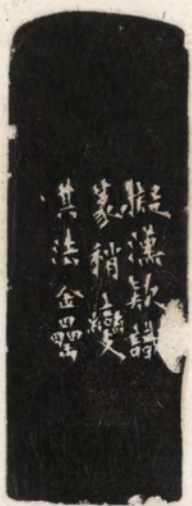 擬漢款識
篆稍變
其法金罍